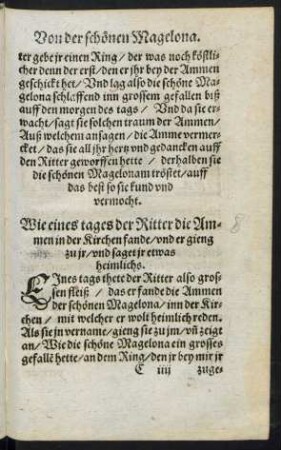 Von der schönen Magelona.
ter gebe jr einen Ring / der was noch köstli-
cher denn der erst / den er jhr bey der Ammen
geschickt het / Vnd lag also die schöne Ma-
gelona schlaffend inn grossem gefallen biß
auff den morgen des tags / Vnd da sie er-
wacht / sagt sie solchen traum der Ammen /
Auß welchem ansagen / die Amme vermer-
cket / das sie all jhr hertz vnd gedancken auff
den Ritter geworffen hette / derhalben sie
die schönen Magelonam tröstet / auff
das best so sie kund vnd
vermocht.
Wie eines tages der Ritter die Am-
men in der Kirchen fande / vnd er gieng
zu jr / vnd saget jr etwas
heimlichs.
EJnes tags thett der Ritter also gros-
sen fleiß / das er fande die Ammen
der schönen Magelona / inn der Kir-
chen / mit welcher er wolt heimlich reden.
Als sie jn vername / gieng sie zu jm / vñ zeigt
an / Wie die schöne Magelona ein grosses
gefallē hette / an dem Ring / den jr bey mir jr
E iiij zuge-
8